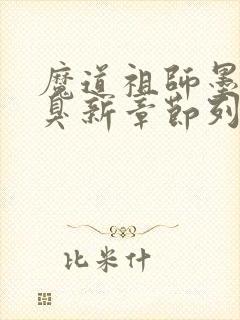 魔道祖師墨
臭新章節列
比米什